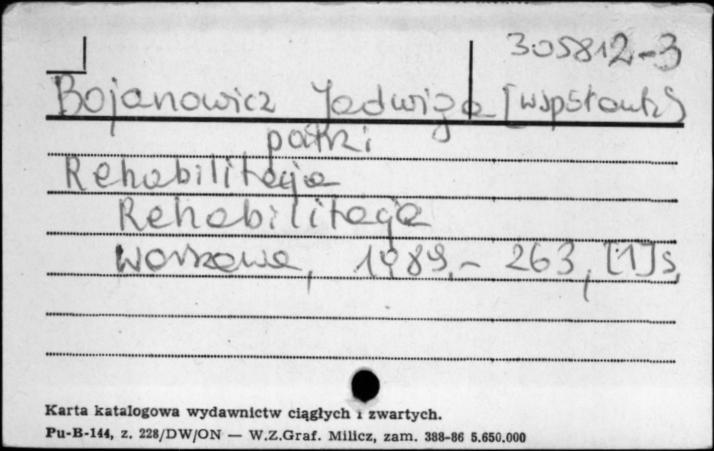 305812-3
Bojanowicz Jadwiga [współaut.]
patrz:
Rehabilitacja
Rehabilitacja
Warszawa, 1989.- 263, [1] s.
Karta katalogowa wydawnictw ciągłych i zwartych.
Pu-B-144, z. 228/DW/ON — W.Z.Graf. Milicz, zam. 388-86 5.650.000